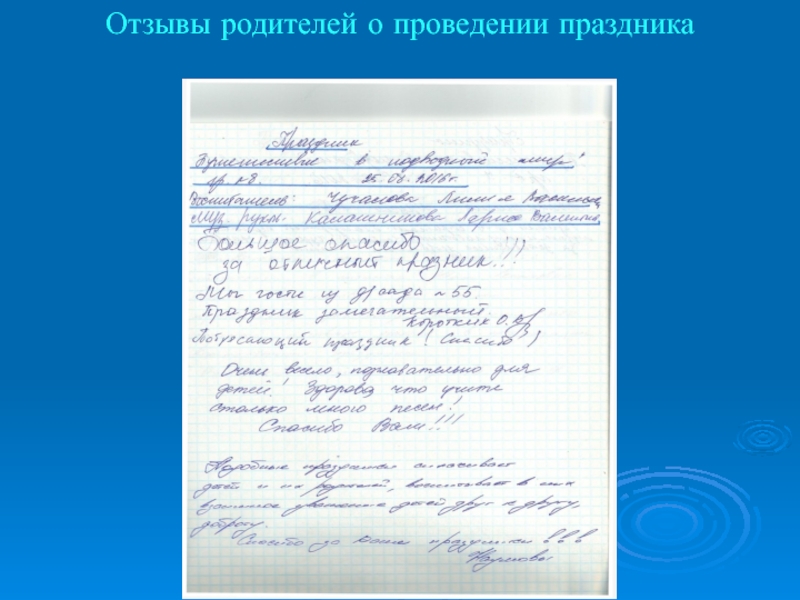 Отзывы родителей о проведении праздника
Праздник
Путешествие в подводный мир"
гр. 25.
Воспитатель: Чуганова Лилия
Муз. рук. Калашникова Лариса
Большое спасибо
за отличный праздник!!!
Мы гости из д/сада №55.
Праздник замечательный.
Коротких О.
Потрясающий праздник! Спасибо )
Очень весело, познавательно для
детей! Здорово, что учите
столько много песен!
Спасибо Вам!!!
Подобные праздники сплачивает
детей и их родителей, воспитывает в них
взаимное уважение детей друг к другу,
доброту.
Спасибо за ваши праздники!!!
Наумовы